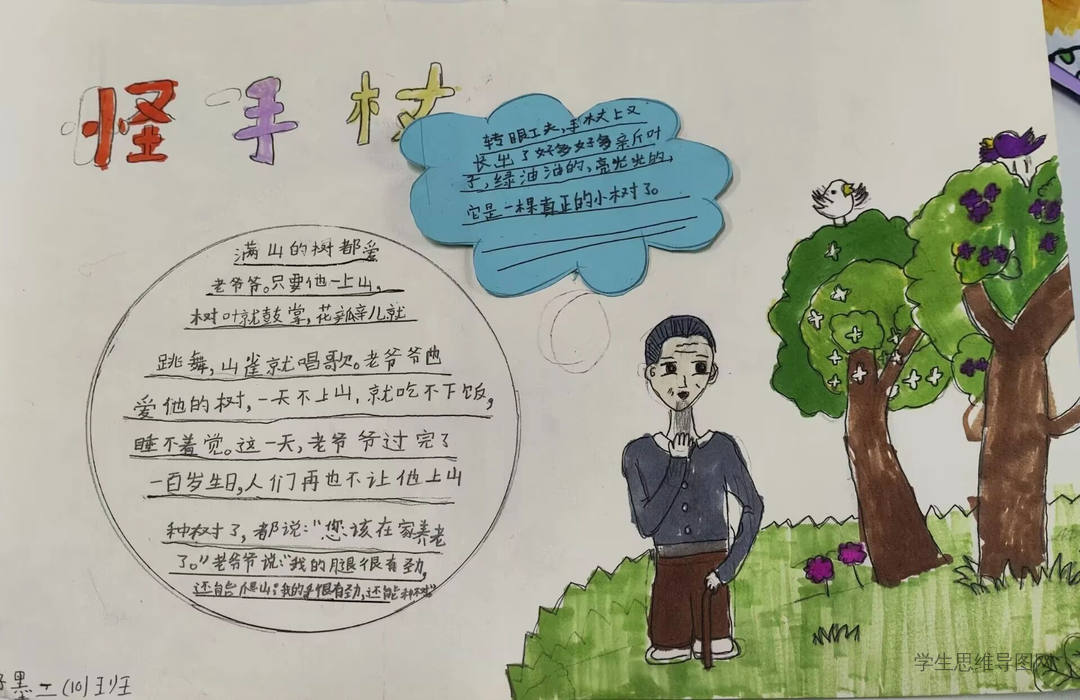 怪手杖
转眼工夫,手杖上又
长出了好多好多新叶
子,绿油油的,亮光光的,
它是一棵真正的小树了。
满山的树都爱
老爷爷。只要他一上山,
树叶就鼓掌,花瓣儿就
跳舞,山雀就唱歌。老爷爷也
爱他的树,一天不上山,就吃不下饭,
睡不着觉。这一天,老爷爷过完了
一百岁生日,人们再也不让他上山
种树了,都说:“您该在家养老
了。”老爷爷说:“我的腿很有劲,
还能爬山;我的手很有劲,还能种树”
墨二(10)班
学生思维导图网